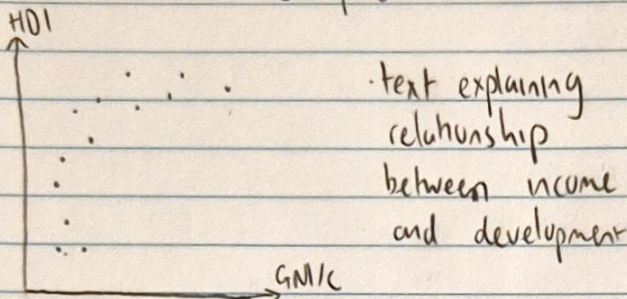 HDI
·text explaining
relationship
between income
and development
GNI/C